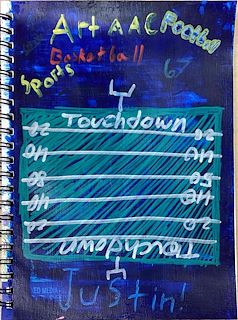 Art AAC Football
Basketball
Sports
67
Touchdown
20 20
40 40
50
40
20 20
Touchdown
ED MEDIA
Justin!